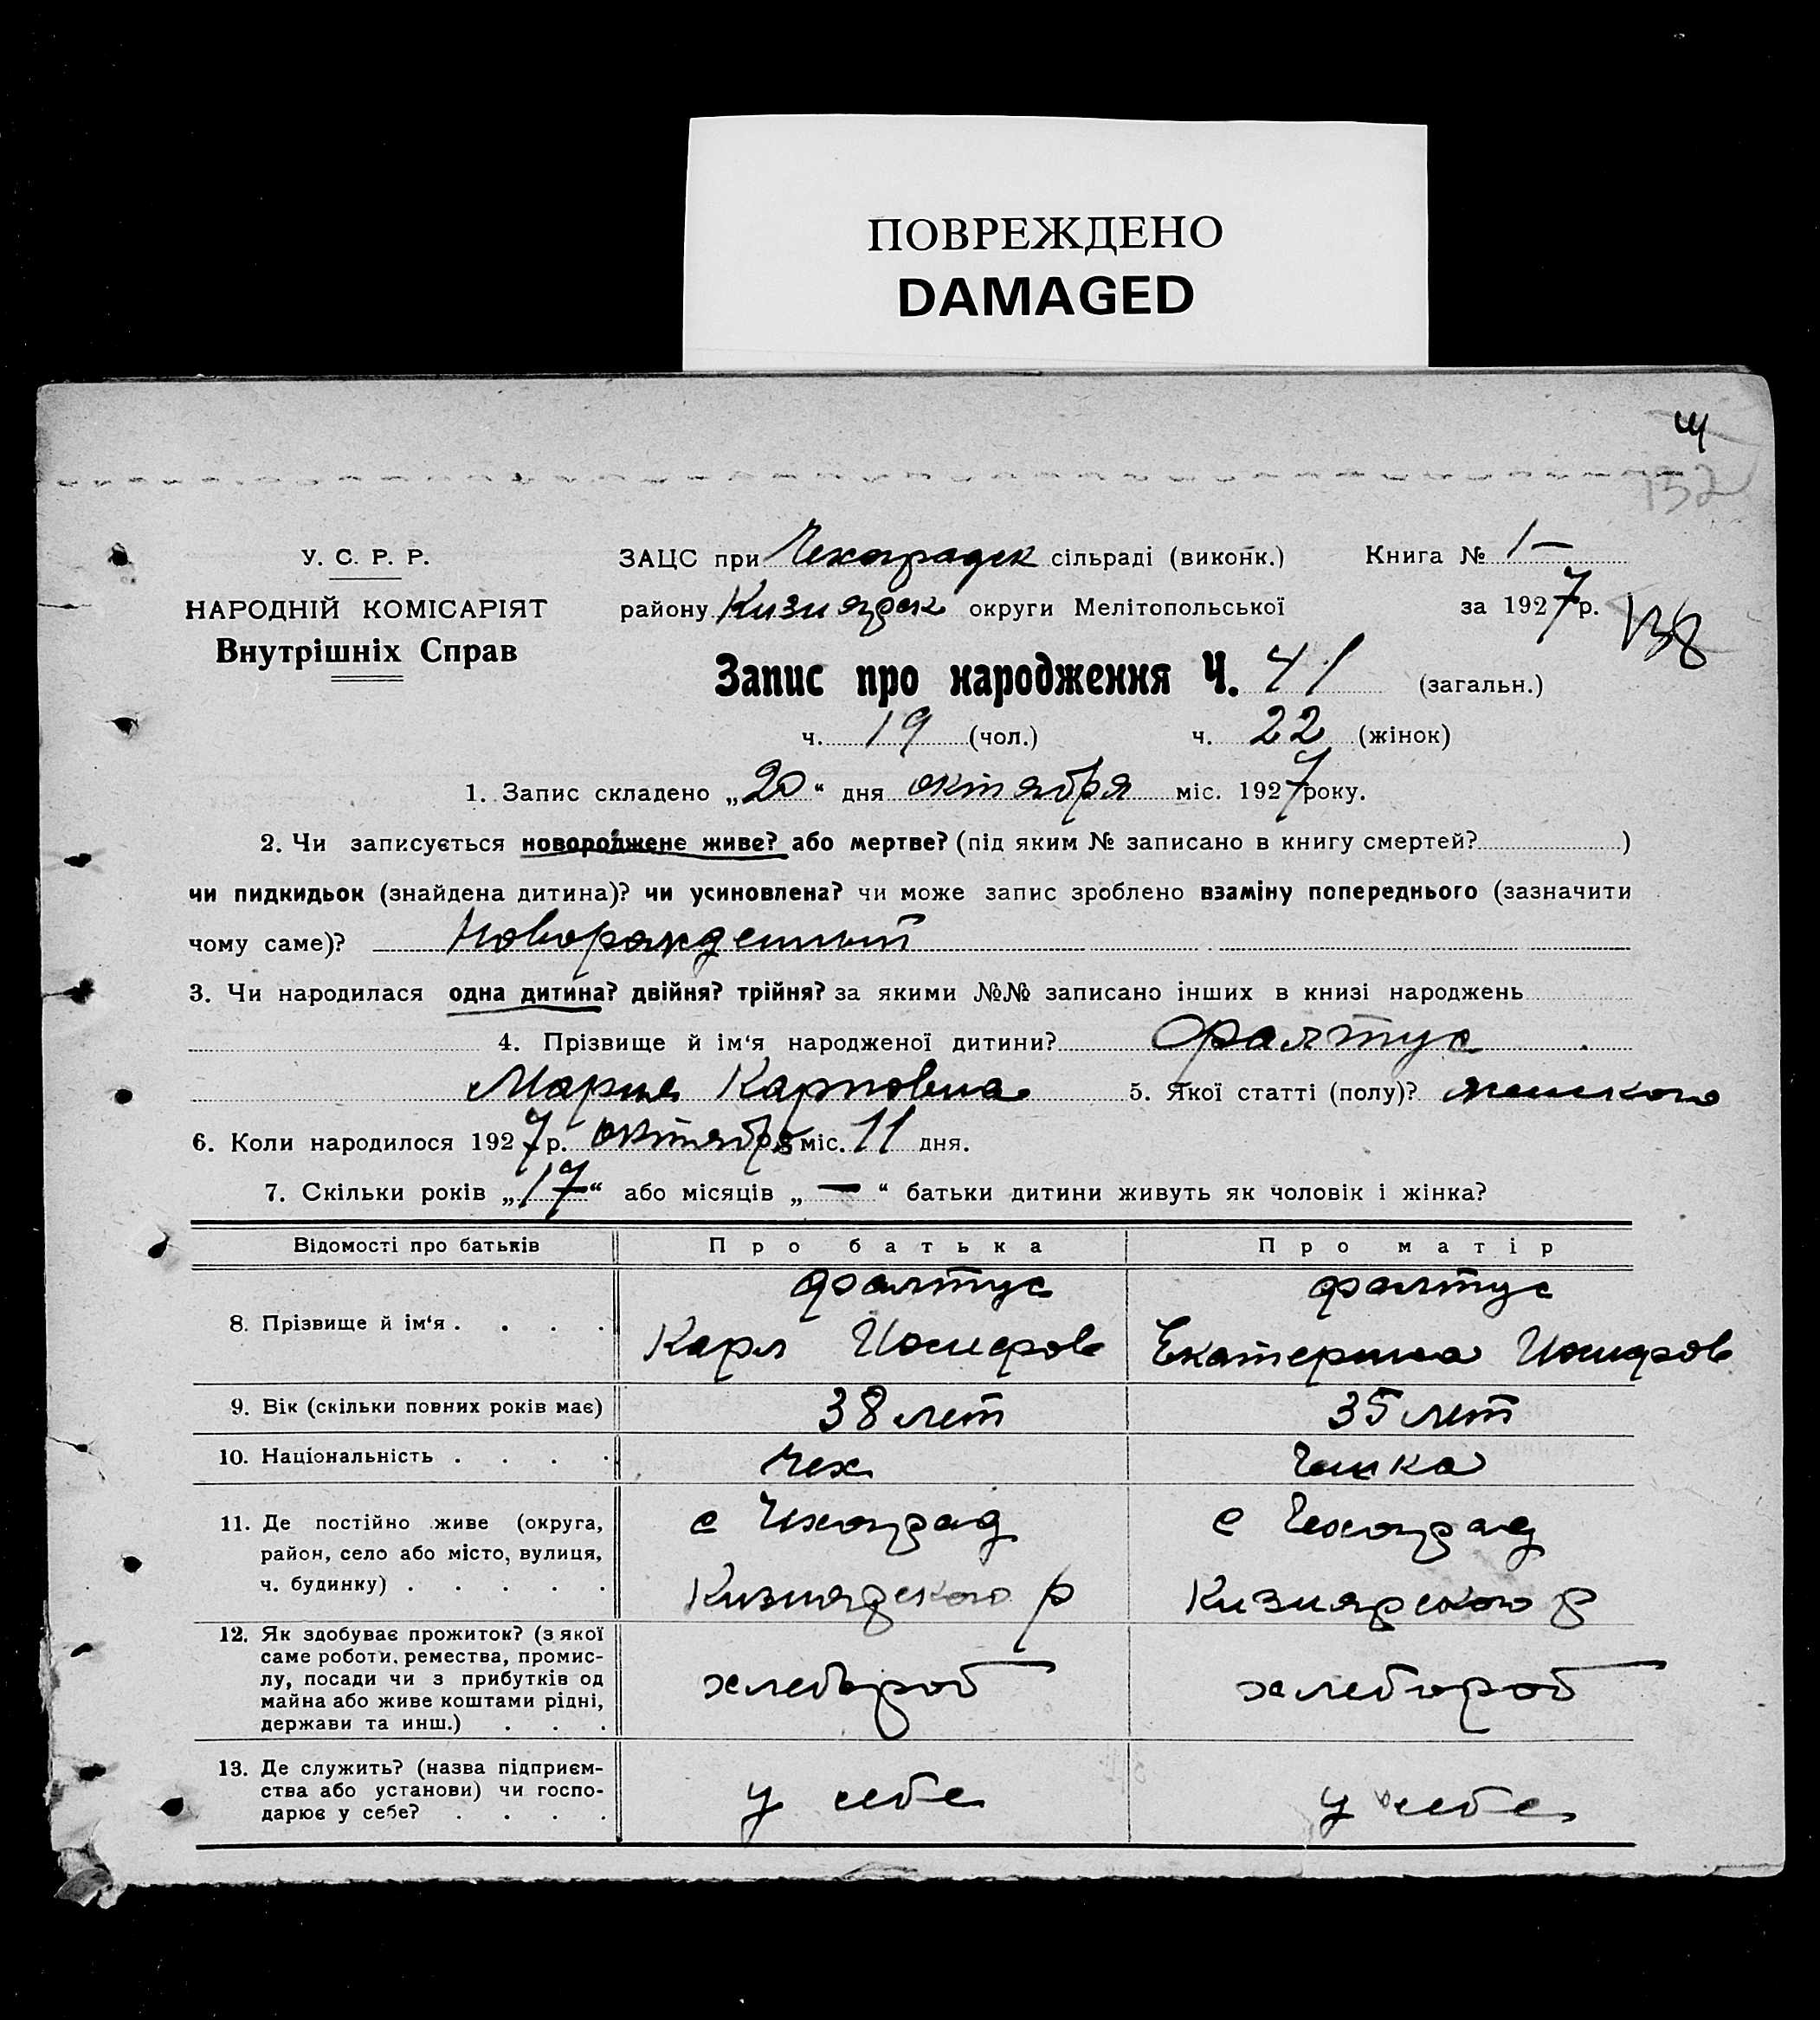 ПОВРЕЖДЕНО
DAMAGED
132
У. С. Р. Р.
НАРОДНІЙ КОМІСАРІЯТ
Внутрішніх Справ
ЗАЦС при Чехоградск сільраді (виконк.)
Книга № 1—
району Кизиярск округи Мелітопольської
за 1927 р.
138
Запис про народження Ч. 41 (загальн.)
ч. 19 (чол.) ч. 22 (жінок)
1. Запис складено „20“ дня октября міс. 1927 року.
2. Чи записується новороджене живе? або мертве? (під яким № записано в книгу смертей? )
чи пидкидьок (знайдена дитина)? чи усиновлена? чи може запис зроблено взаміну попереднього (зазначити
чому саме)? Новорожденный
3. Чи народилася одна дитина? двійня? трійня? за якими №№ записано інших в книзі народжень
4. Прізвище й ім‘я народженої дитини? Фалтус
Мария Карловна 5. Якої статті (полу)? женского
6. Коли народилося 1927 р. октября міс. 11 дня.
7. Скільки років „17“ або місяців „—“ батьки дитини живуть як чоловік і жінка?
Відомості про батьків Про батька Про матір
8. Прізвище й ім‘я . . . . Фалтус Фалтус
Карл Иосифов Екатерина Иосифов
9. Вік (скільки повних років має) 38 лет 35 лет
10. Національність . . . . Чех Чешка
11. Де постійно живе (округа, с Чехоград с Чехоград
район, село або місто, вулиця,
ч. будинку) . . . . . Кизиярского р Кизиярского р
12. Як здобуває прожиток? (з якої
саме роботи, ремества, промис-
лу, посади чи з прибутків од хлебороб хлебороб
майна або живе коштами рідні,
держави та инш.) . . .
13. Де служить? (назва підприєм-
ства або установи) чи госпо- у себе у себе
дарює у себе? . . . .